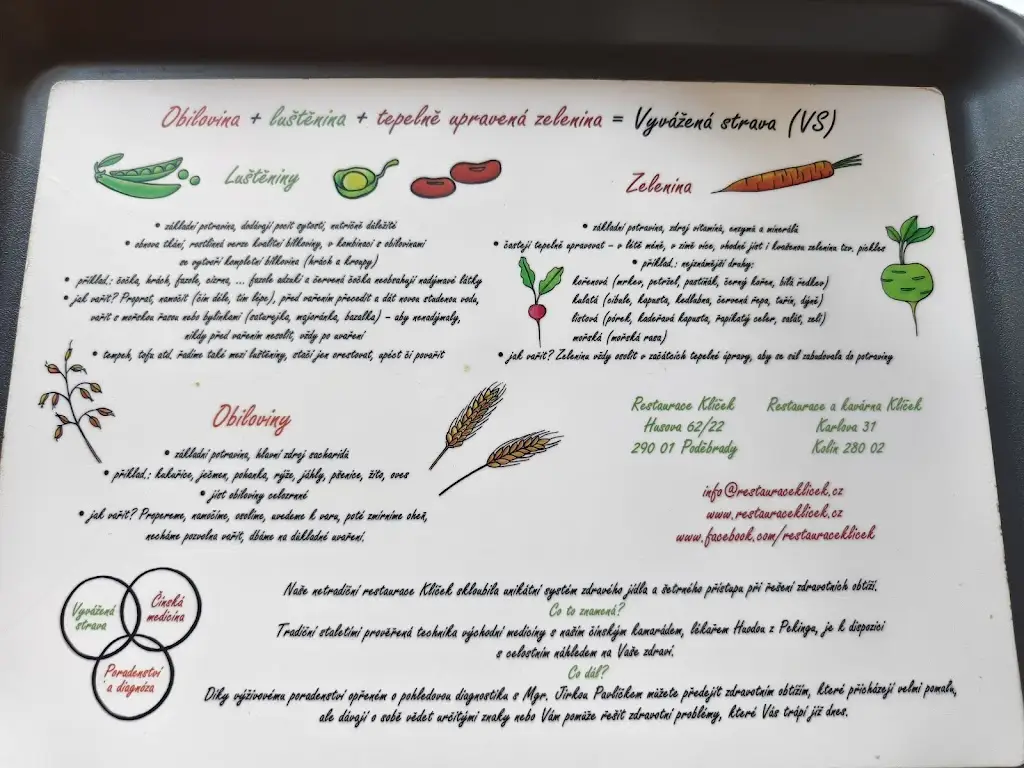 Obilovina + luštěnina + tepelně upravená zelenina = Vyvážená strava (VS)
Luštěniny
• základní potravina, dodávají pocit sytosti, nutričně důležité
• obnova tkání, rostlinná verze kvalitní bílkoviny, v kombinaci s obilovinami
se vytvoří kompletní bílkovina (hrách a kroupy)
• příklad.: čočka, hrách, fazole, cizrna, ... fazole adzuki a červená čočka neobsahují nadýmavé látky
• jak vařit? Proprat, namočit (čím déle, tím lépe), před vařením přecedit a dát novou studenou vodu,
vařit s mořskou řasou nebo bylinkami (saturejka, majoránka, bazalka) – aby nenadýmaly,
nikdy před vařením nesolit, vždy po uvaření
• tempeh, tofu atd. řadíme také mezi luštěniny, stačí jen orestovat, upéct či povařit
Zelenina
• základní potravina, zdroj vitamínů, enzymů a minerálů
• častěji tepelně upravovat – v létě méně, v zimě více, vhodné jíst i kvašenou zeleninu tzv. pickles
• příklad.: nejznámější druhy:
kořenová (mrkev, petržel, pastiňák, černý kořen, bílá ředkev)
kulatá (cibule, kapusta, kedlubna, červená řepa, tuřín, dýně)
listová (pórek, kadeřavá kapusta, řapíkatý celer, salát, zelí)
mořská (mořská řasa)
• jak vařit? Zelenina vždy osolit v začátcích tepelné úpravy, aby se sůl zabudovala do potraviny
Obiloviny
• základní potravina, hlavní zdroj sacharidů
• příklad.: kukuřice, ječmen, pohanka, rýže, jáhly, pšenice, žito, oves
• jíst obiloviny celozrnné
• jak vařit? Propereme, namočíme, osolíme, uvedeme k varu, poté zmírníme oheň,
necháme pozvolna vařit, dbáme na důkladné uvaření.
Restaurace Klíček
Husova 62/22
290 01 Poděbrady
Restaurace a kavárna Klíček
Karlova 31
Kolín 280 02
info@restauraceklicek.cz
www.restauraceklicek.cz
www.facebook.com/restauraceklicek
Vyvážená
strava
Čínská
medicína
Poradenství
a diagnóza
Naše netradiční restaurace Klíček skloubila unikátní systém zdravého jídla a šetrného přístupu při řešení zdravotních obtíží.
Co to znamená?
Tradiční staletími prověřená technika východní medicíny s naším čínským kamarádem, lékařem Huodou z Pekingu, je k dispozici
s celostním náhledem na Vaše zdraví.
Co dál?
Díky výživovému poradenství opřeném o pohledovou diagnostiku s Mgr. Jirkou Pavlíčkem můžete předejít zdravotním obtížím, které přicházejí velmi pomalu,
ale dávají o sobě vědět určitými znaky nebo Vám pomůže řešit zdravotní problémy, které Vás trápí již dnes.